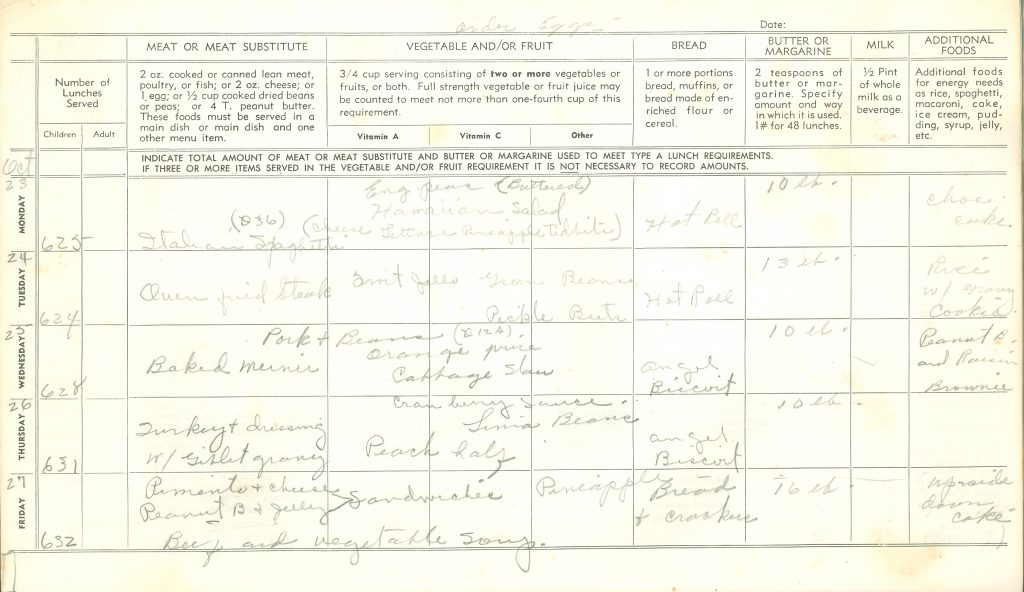 order Eggs
Date:
MEAT OR MEAT SUBSTITUTE
VEGETABLE AND/OR FRUIT
BREAD
BUTTER OR MARGARINE
MILK
ADDITIONAL FOODS
Number of Lunches Served
2 oz. cooked or canned lean meat, poultry, or fish; or 2 oz. cheese; or 1 egg; or ½ cup cooked dried beans or peas; or 4 T. peanut butter. These foods must be served in a main dish or main dish and one other menu item.
3/4 cup serving consisting of two or more vegetables or fruits, or both. Full strength vegetable or fruit juice may be counted to meet not more than one-fourth cup of this requirement.
1 or more portions bread, muffins, or bread made of enriched flour or cereal.
2 teaspoons of butter or margarine. Specify amount and way in which it is used. 1# for 48 lunches.
½ Pint of whole milk as a beverage.
Additional foods for energy needs as rice, spaghetti, macaroni, cake, ice cream, pudding, syrup, jelly, etc.
Children
Adult
Vitamin A
Vitamin C
Other
INDICATE TOTAL AMOUNT OF MEAT OR MEAT SUBSTITUTE AND BUTTER OR MARGARINE USED TO MEET TYPE A LUNCH REQUIREMENTS.
IF THREE OR MORE ITEMS SERVED IN THE VEGETABLE AND/OR FRUIT REQUIREMENT IT IS NOT NECESSARY TO RECORD AMOUNTS.
Oct
23
MONDAY
625
(D36)
Italian Spaghetti
Eng peas (Buttered)
Hawaiian Salad
(Cheese Lettuce Pineapple tidbits)
Hot Roll
10 lb.
choc cake.
24
TUESDAY
624
Oven fried Steak
Fruit Jello
Green Beans
Pickle Beets
Hot Roll
13 lb.
Rice w/ gravy
Cookie
25
WEDNESDAY
628
Baked Weiner
Pork + Beans (D124)
Orange juice
Cabbage Slaw
angel Biscuit
10 lb.
Peanut B. and Raisin Brownie
26
THURSDAY
631
Turkey + dressing
W/ Giblet gravy
Cranberry Sauce.
Lima Beans
Peach half
angel Biscuit
10 lb.
27
FRIDAY
632
Pimento + cheese
Peanut B + Jelly
Sandwiches
Pineapple
Beef and Vegetable Soup.
Bread + crackers
16 lb.
upside down cake